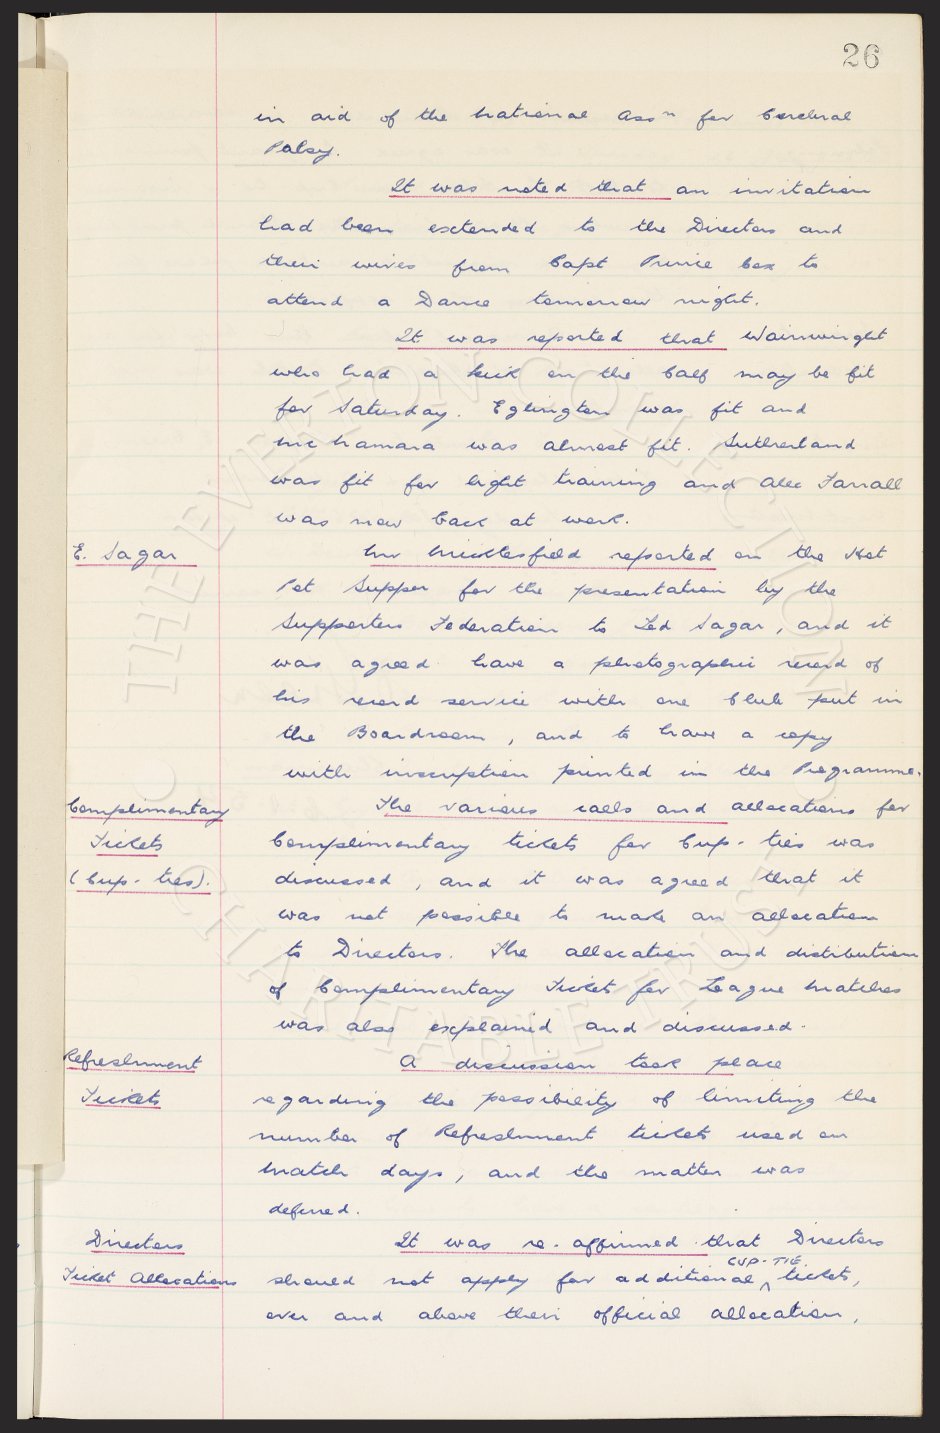 26
in aid of the National Assn for Cerebral
Palsy.
It was noted that an invitation
had been extended to the Directors and
their wives from Capt Prince Cox to
attend a Dance tomorrow night.
It was reported that Wainwright
who had a kick on the Calf may be fit
for Saturday. Eglington was fit and
McNamara was almost fit. Sutherland
was fit for light training and Alec Farrall
was now back at work.
E. Sagar
Mr Micklesfield reported on the Hot
Pot Supper for the presentation by the
Supporters Federation to Ted Sagar, and it
was agreed have a photographic record of
his record service with one Club put in
the Boardroom, and to have a copy
with inscription printed in the Programme.
Complimentary
Tickets
(Cup-ties).
The various calls and allocations for
Complimentary tickets for Cup-ties was
discussed, and it was agreed that it
was not possible to make an allocation
to Directors. The allocation and distribution
of Complimentary Tickets for League Matches
was also explained and discussed.
Refreshment
Tickets
A discussion took place
regarding the possibility of limiting the
number of Refreshment tickets used on
Match days, and the matter was
deferred.
Directors
Ticket Allocations
It was re-affirmed that Directors
should not apply for additional CUP-TIE tickets,
over and above their official allocation,
THE EVERTON COLLECTION
CHARITABLE TRUST